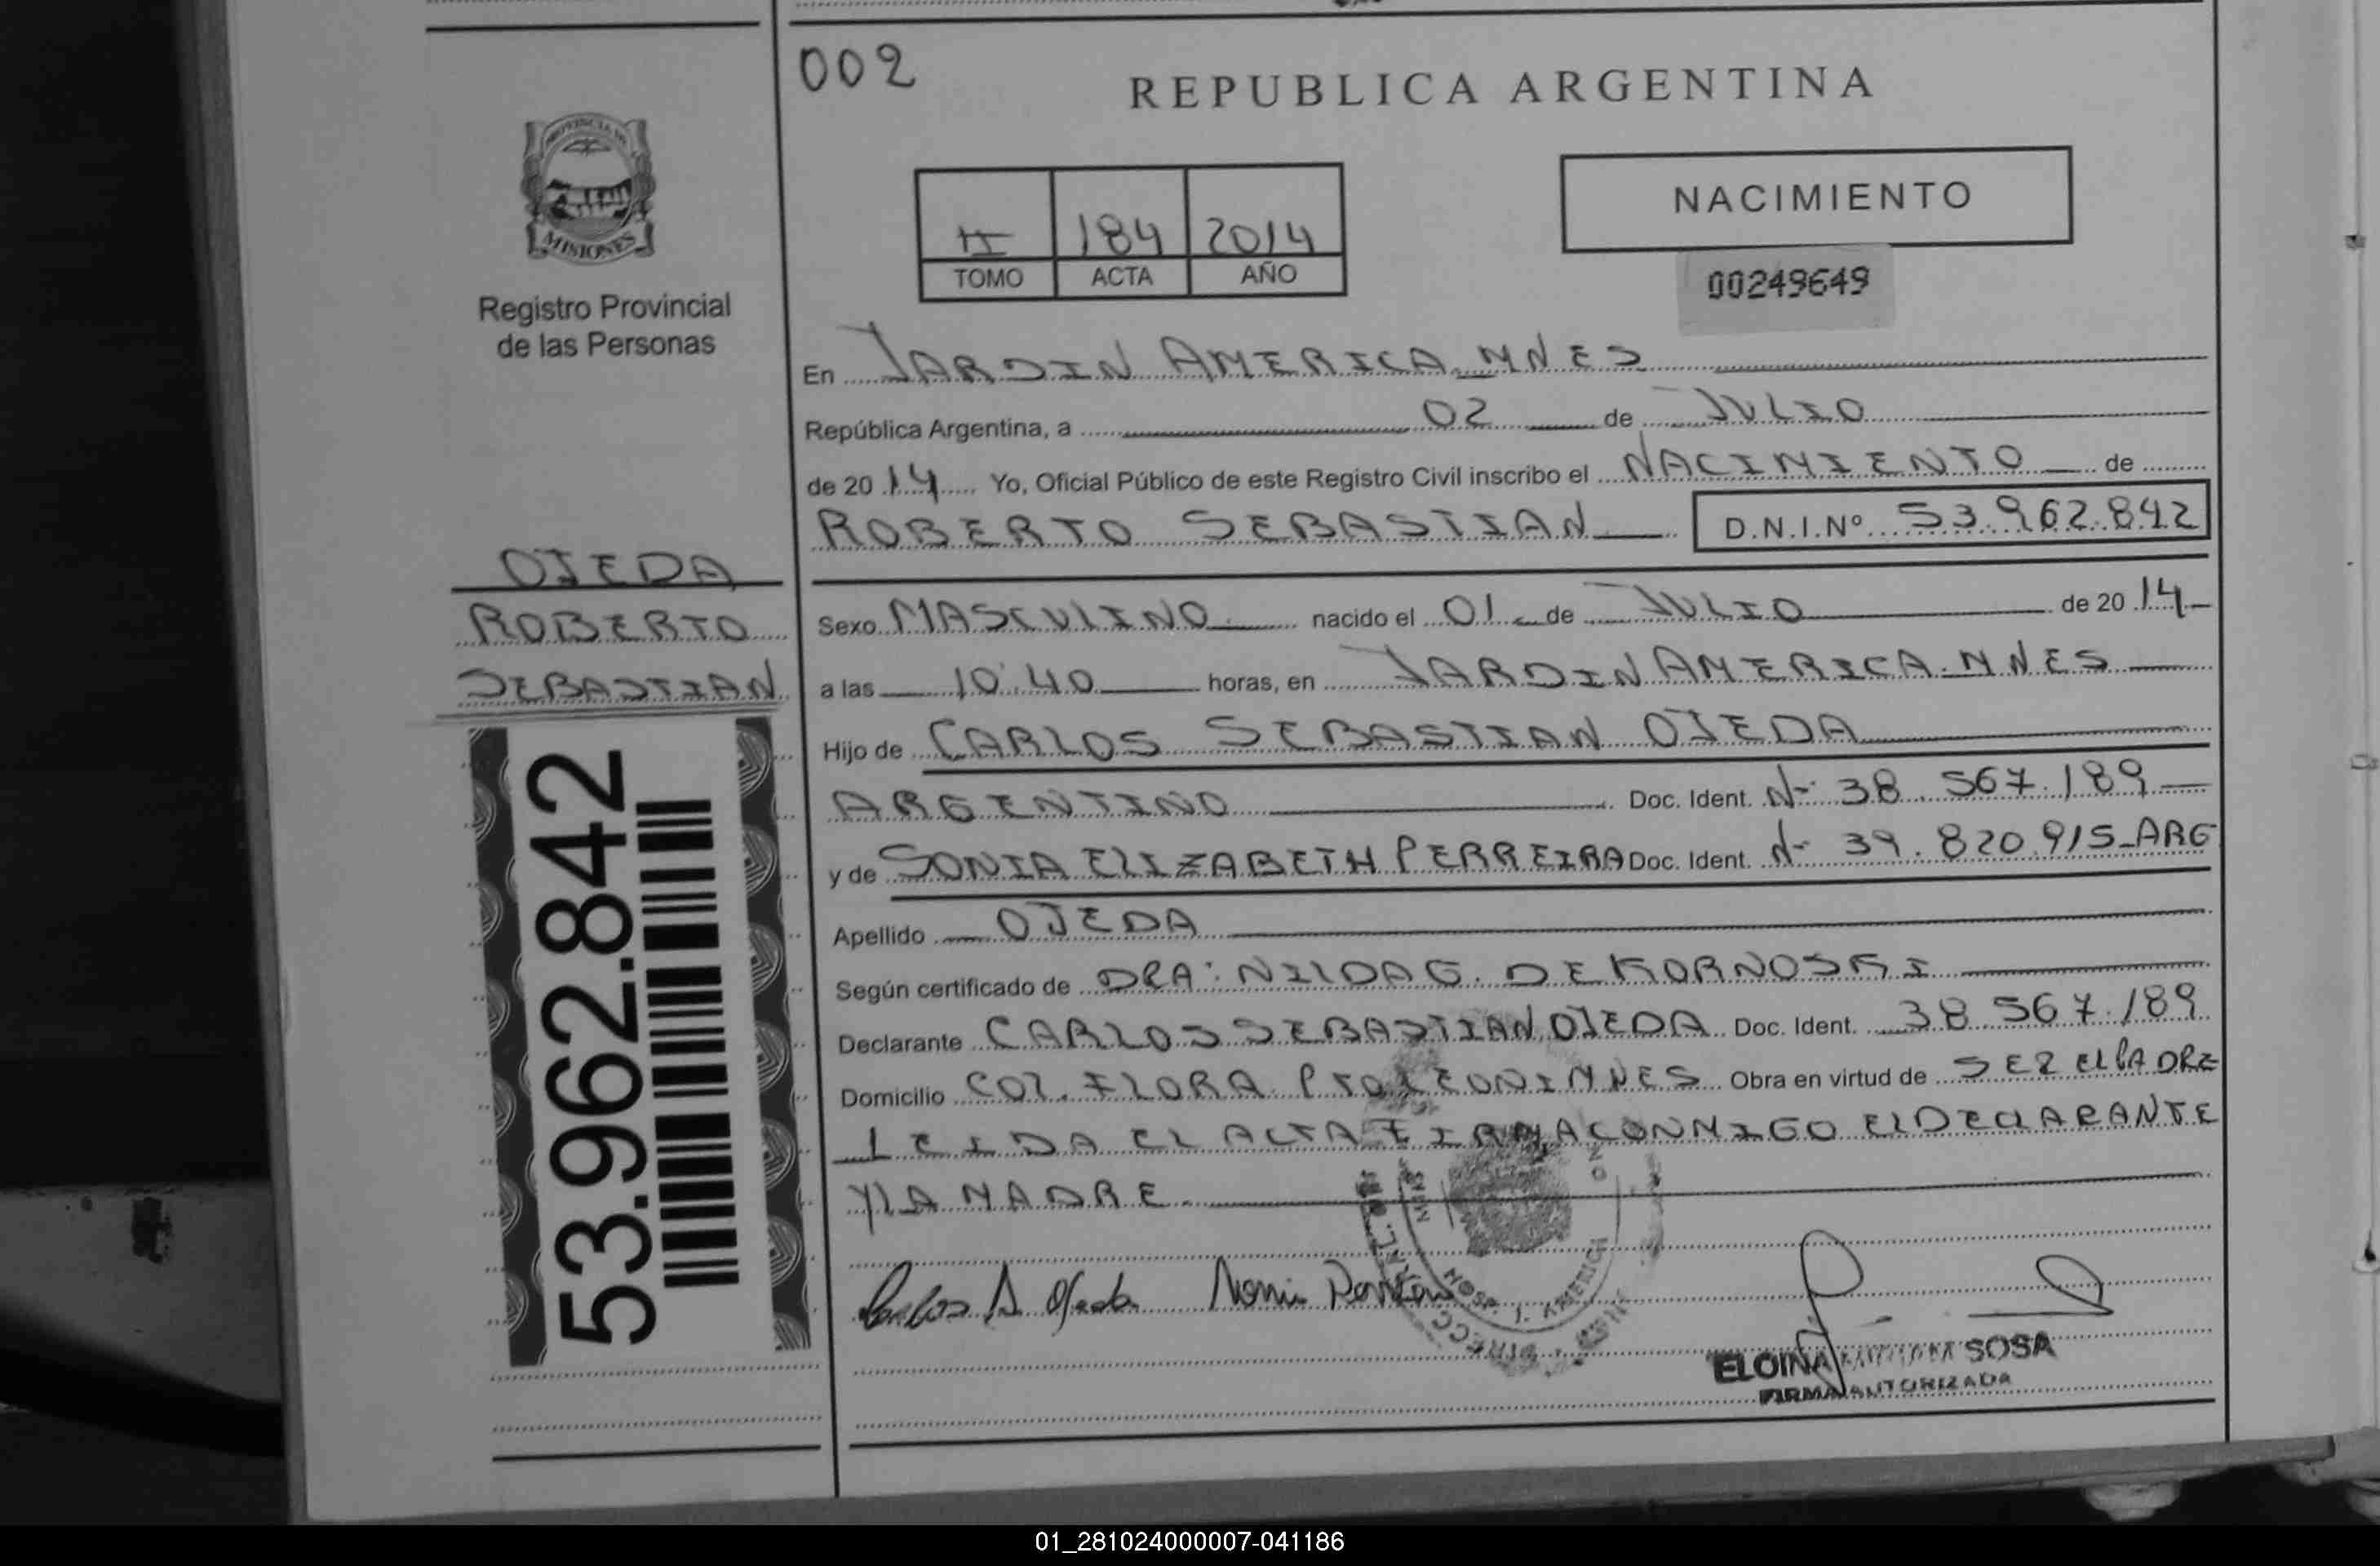 002
REPUBLICA ARGENTINA
PROVINCIA DE
MISIONES
Registro Provincial
de las Personas
II 184 2014
TOMO ACTA AÑO
NACIMIENTO
00249649
En JARDIN AMERICA MNES
República Argentina, a 02 de JULIO
de 2014 Yo, Oficial Público de este Registro Civil inscribo el NACIMIENTO de
ROBERTO SEBASTIAN D.N.I.Nº 53.962.842
OJEDA
ROBERTO
SEBASTIAN
53.962.842
Sexo MASCULINO nacido el 01 de JULIO de 2014
a las 10:40 horas, en JARDIN AMERICA. MNES
Hijo de CARLOS SEBASTIAN OJEDA
ARGENTINO Doc. Ident. Nº 38.567.189
y de SONIA ELIZABETH PERREIRA Doc. Ident. Nº 39.820.915_ARG
Apellido OJEDA
Según certificado de DRA: NILDA G. DE KORNOSKI
Declarante CARLOS SEBASTIAN OJEDA Doc. Ident. 38 567.189
Domicilio COL. FLORA MNES Obra en virtud de SER EL PADRE
LEIDA EL ACTA FIRMA CONMIGO EL DECLARANTE
Y LA MADRE.
Carlos S Ojeda
HOSP. J. AMERICA
ELOINA SOSA
FIRMA AUTORIZADA
01_281024000007-041186